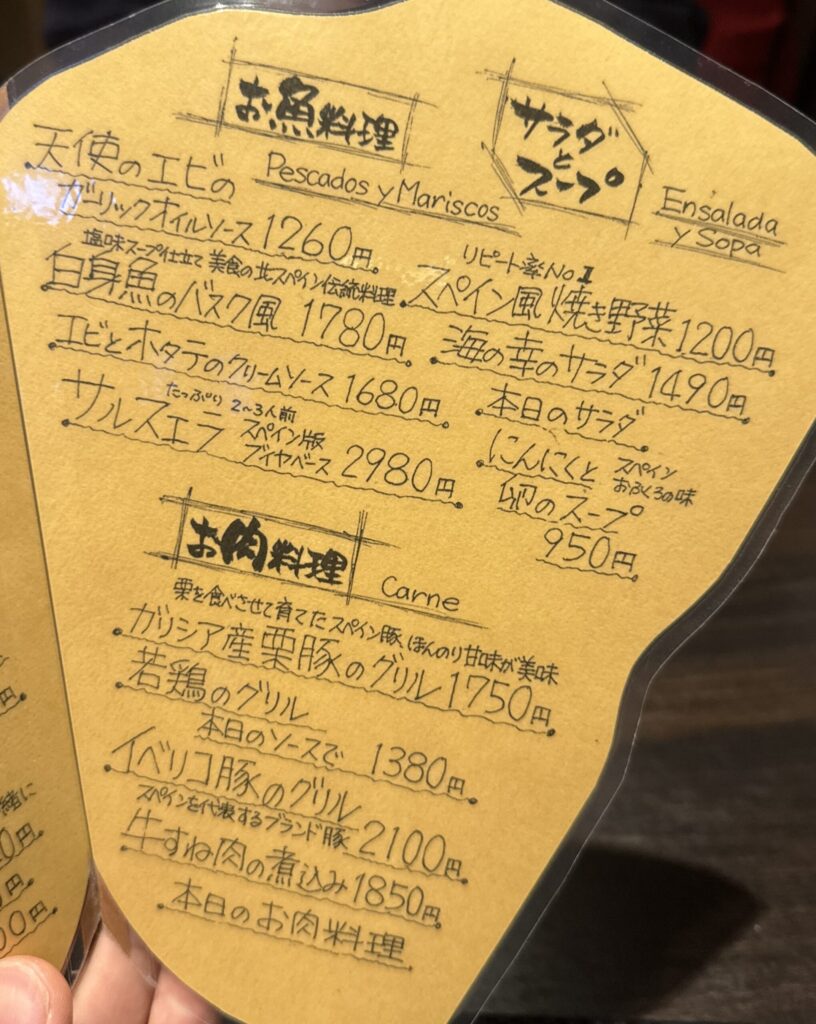 お魚料理
Pescados y Mariscos
天使のエビの
ガーリックオイルソース 1260円
塩味スープ仕立て 美食の北スペイン伝統料理
白身魚のバスク風 1780円
エビとホタテのクリームソース 1680円
たっぷり 2~3人前
サルスエラ スペイン版
ブイヤベース 2980円
サラダ
と
スープ
Ensalada
y Sopa
リピート率No1
スペイン風焼き野菜 1200円
海の幸のサラダ 1490円
本日のサラダ
にんにくと スペイン
おふくろの味
卵のスープ
950円
お肉料理
Carne
栗を食べさせて育てたスペイン豚、ほんのり甘味が美味
ガリシア産栗豚のグリル 1750円
若鶏のグリル
本日のソースで 1380円
イベリコ豚のグリル
スペインを代表するブランド豚 2100円
牛すね肉の煮込み 1850円
本日のお肉料理
円
緒に
0円
円
00円